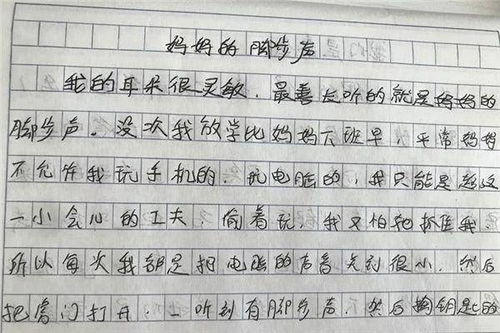 妈妈的脚步声
我的耳朵很灵敏，最喜欢听的就是妈妈的
脚步声。没次我放学比妈妈下班早，平常妈妈
不允许我玩手机的，玩电脑的，我只能是趁这
一小会儿的工夫，偷着玩，我又怕她抓住我，
所以每次我都是把电脑的声音关到很小，然后
把窗门打开，一听到有脚步声，然后